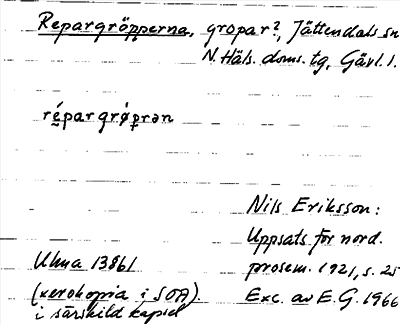 Repargröpperna, gropar?, Jättendals sn
N. Häls. doms. tg, Gävl. l.
Nils Eriksson:
Uppsats för nord.
prosem. 1921, s. 25
Exc. av E.G. 1966
Ulma 13861
(xerokopia i SOA).
i särskild kapsel